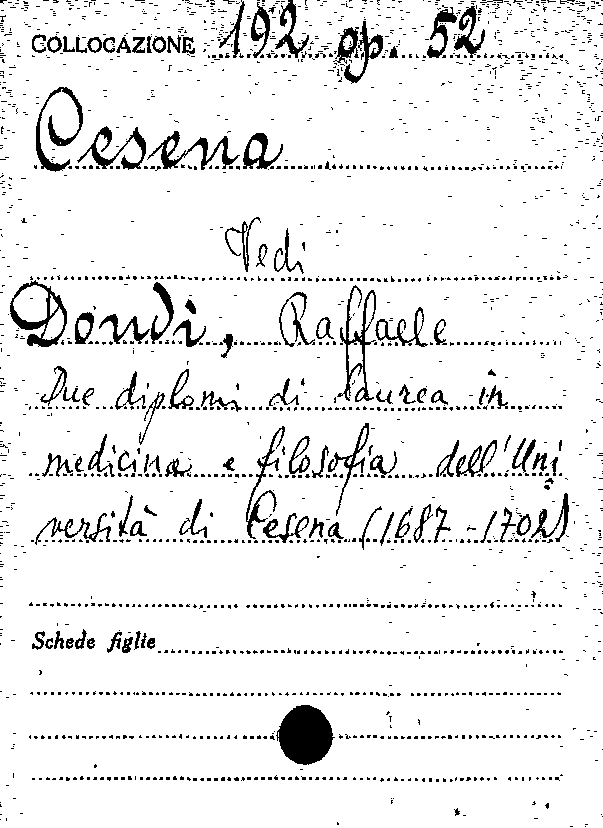 COLLOCAZIONE 192 op. 52
Cesena
Vedi
Dondi, Raffaele
Due diplomi di laurea in
medicina e filosofia dell'Uni
versità di Cesena (1687-1702)
Schede figlie